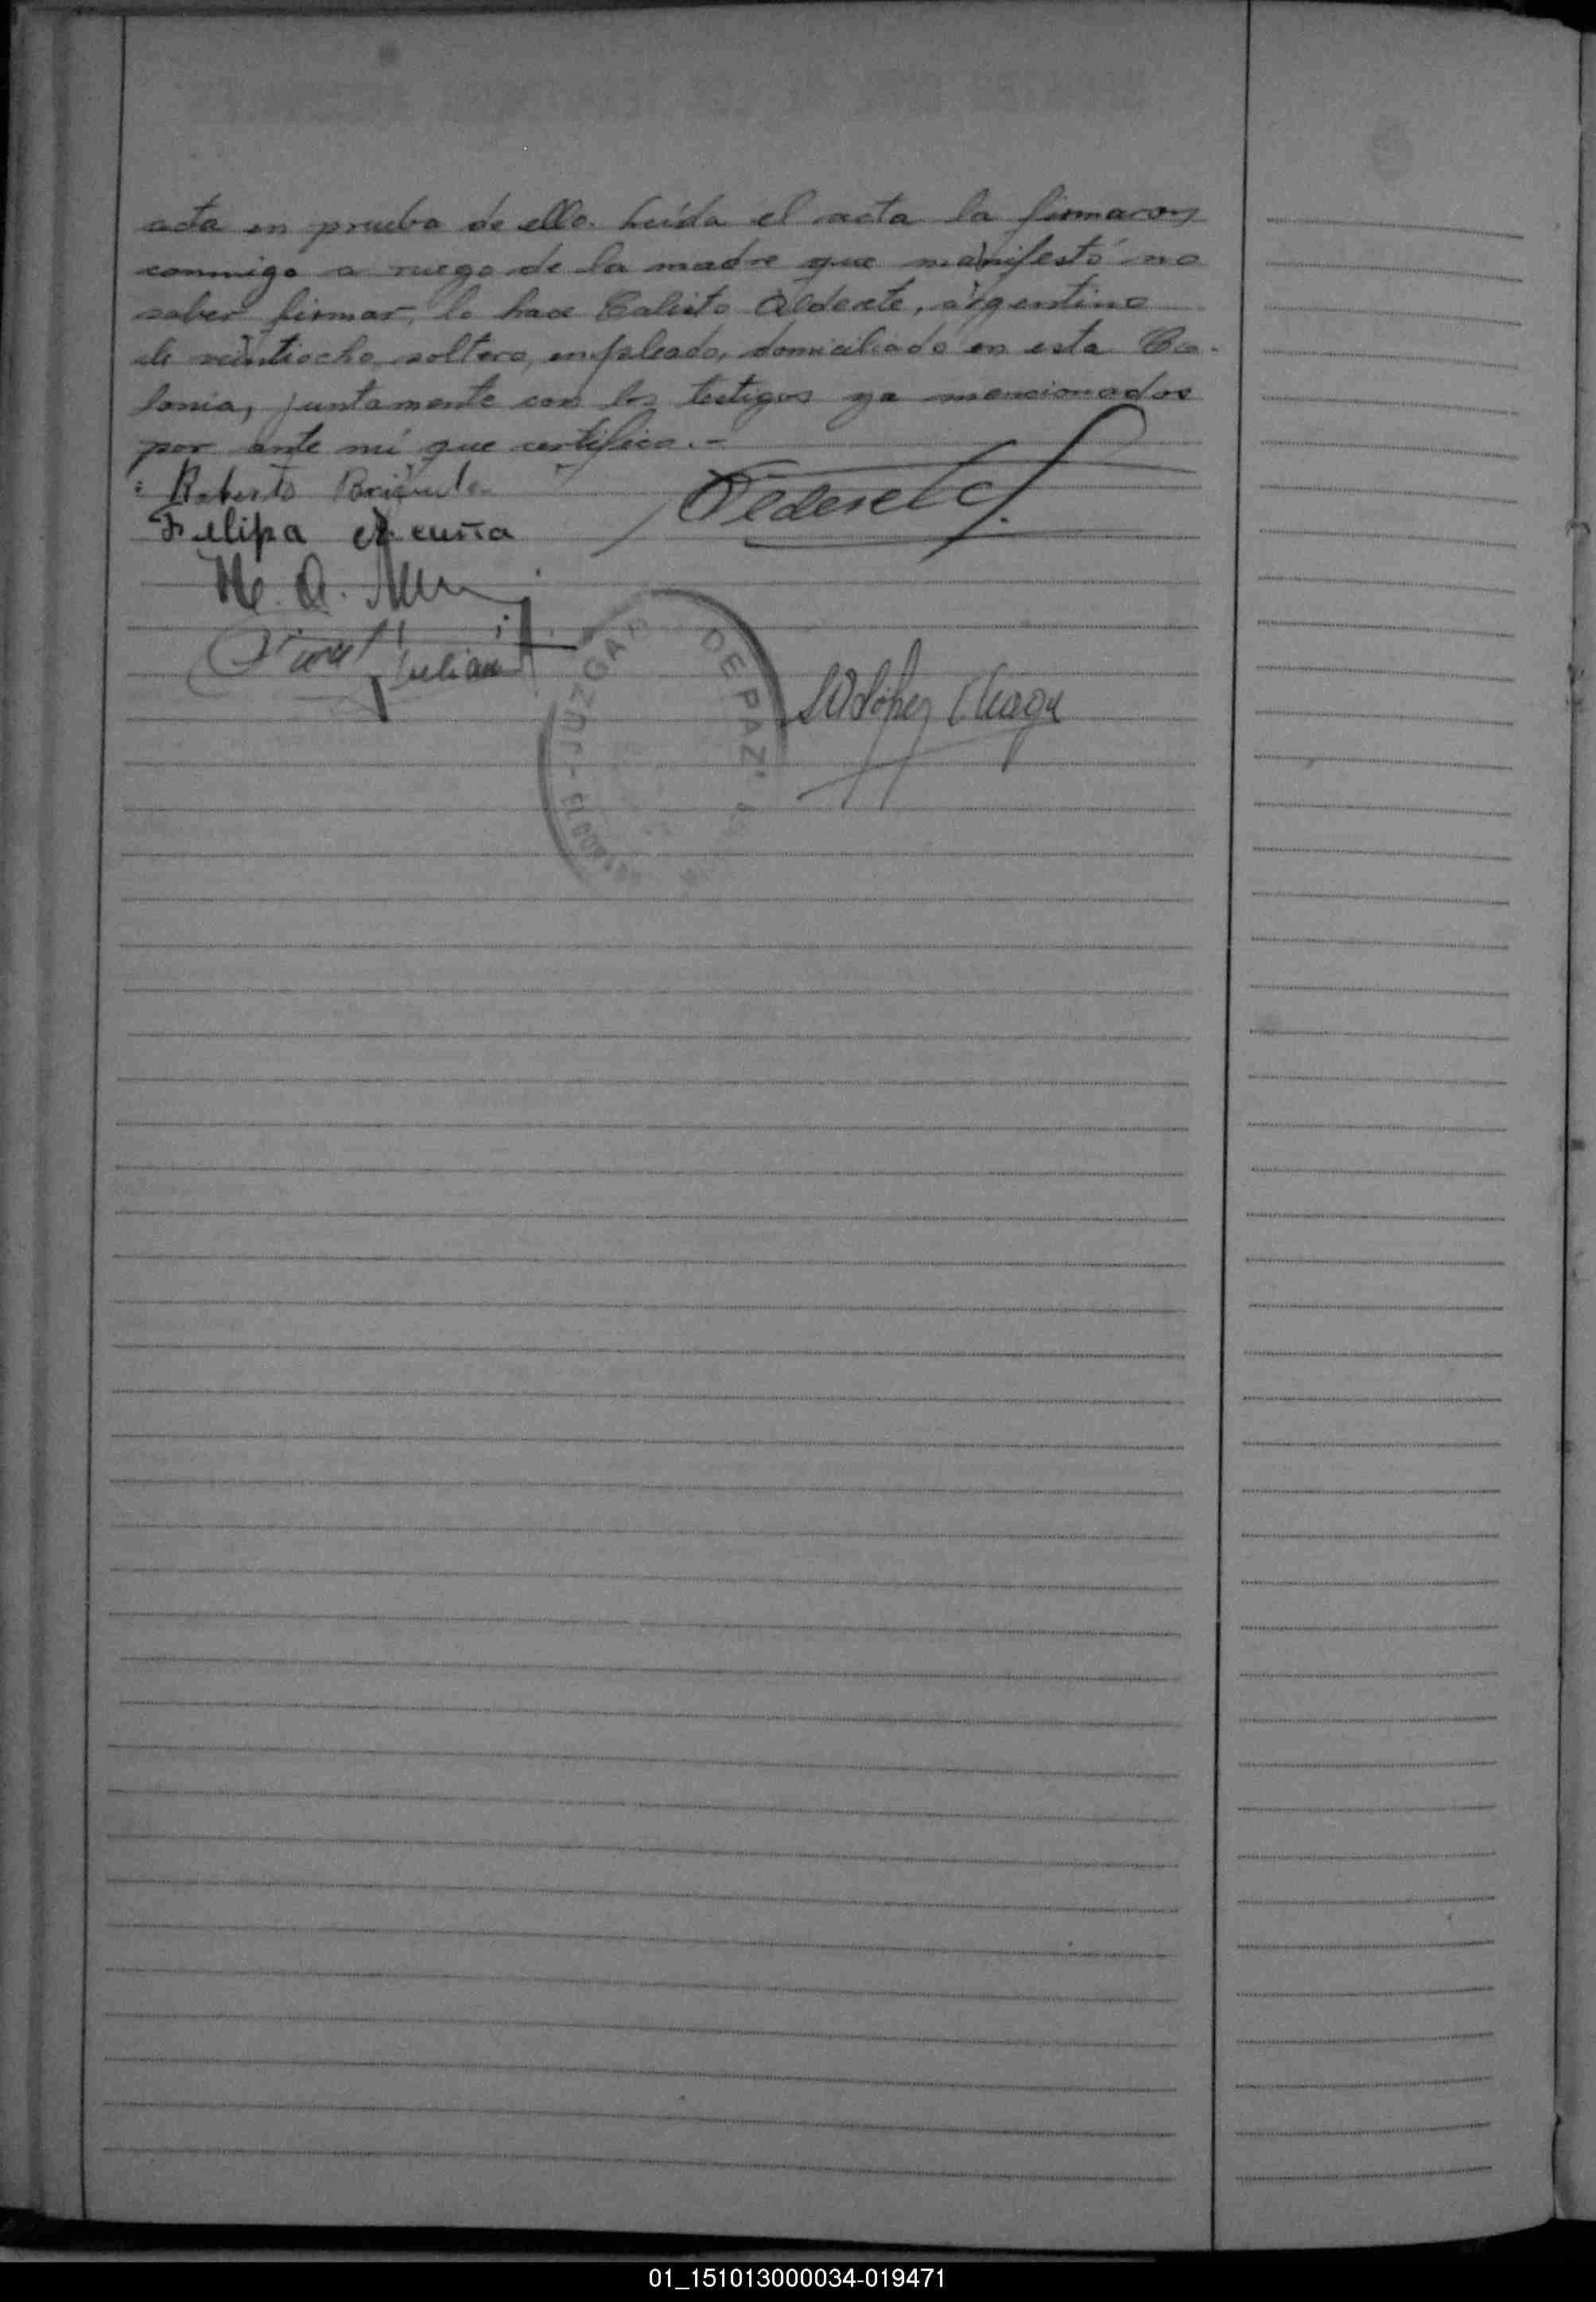 acta en prueba de ello. Leída el acta la firmaron
conmigo a ruego de la madre que manifestó no
saber firmar, lo hace Calisto Alderete, argentino
de veintiocho soltero, empleado, domiciliado en esta Co-
lonia, juntamente con los testigos ya mencionados
por ante mí que certifico.-
Roberto
Felipa Acuña
Julian
JUZGADO DE PAZ
01_151013000034-019471